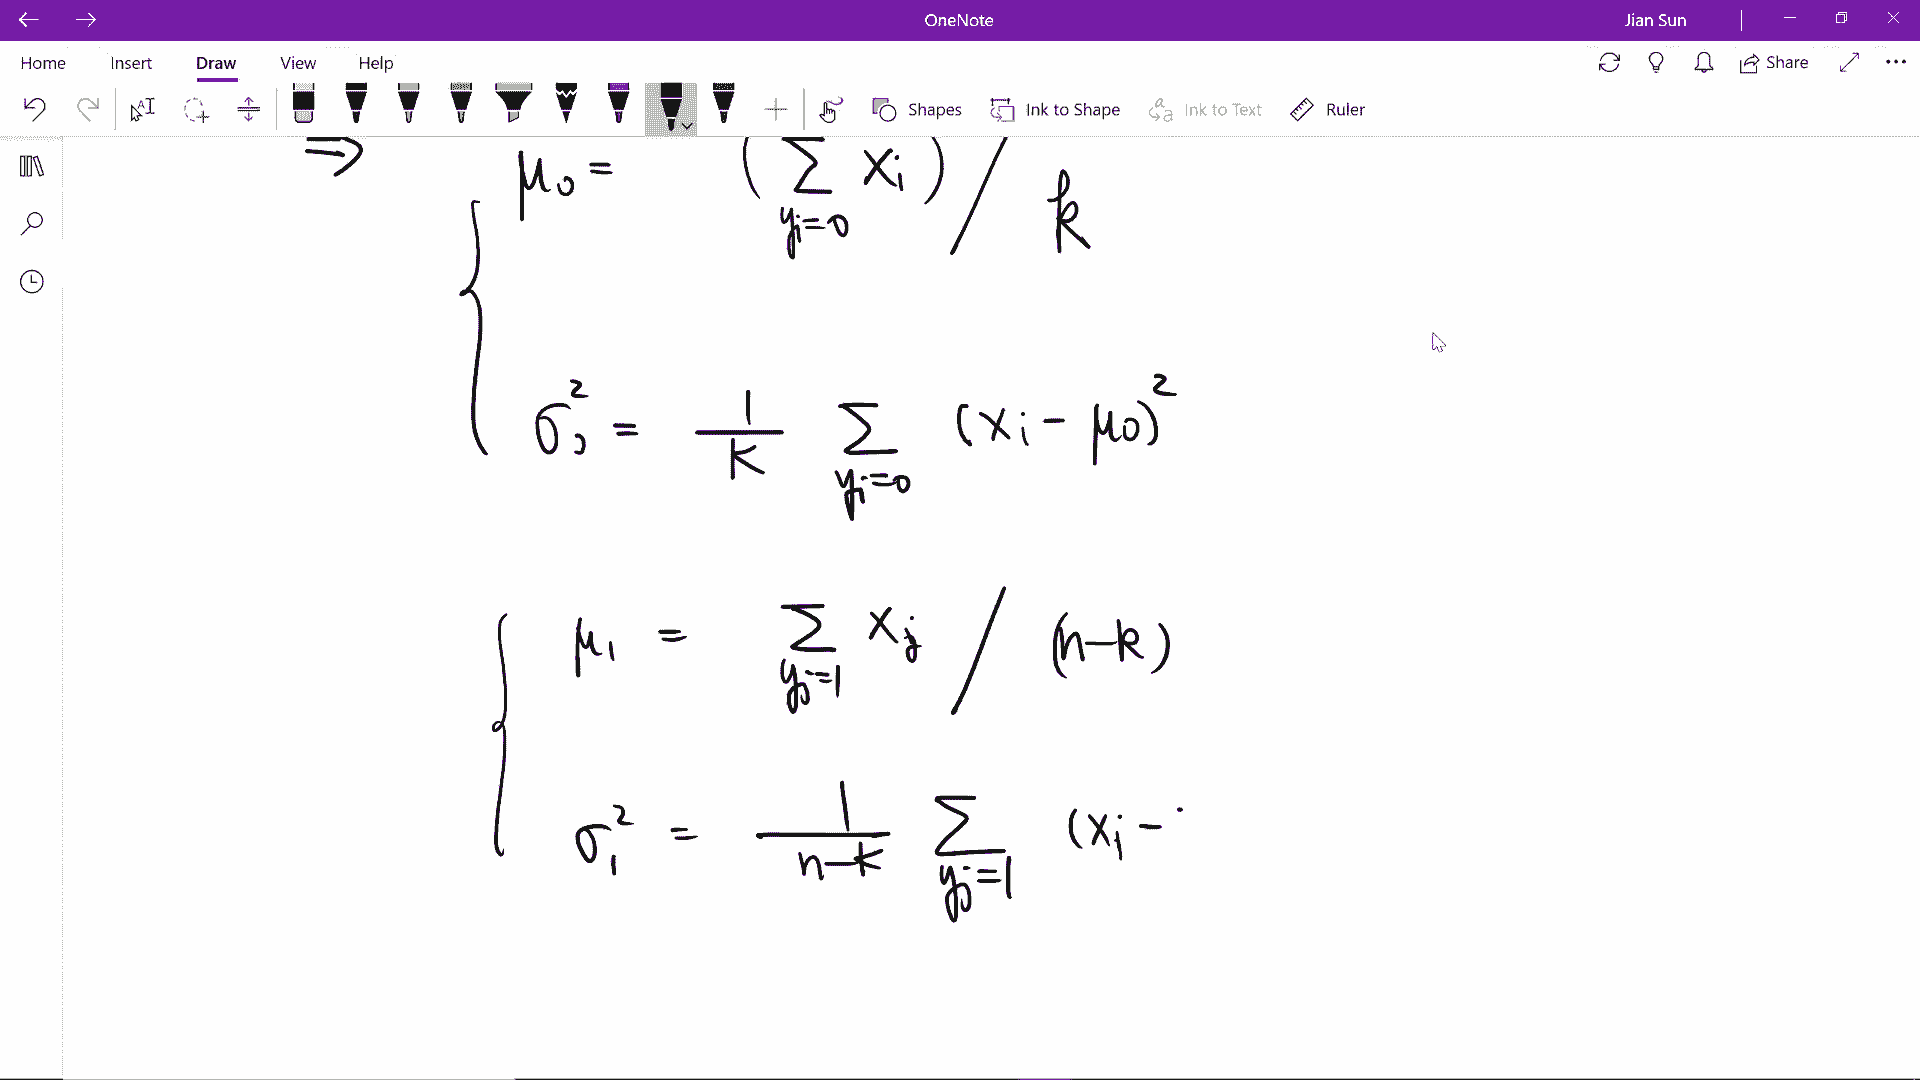 OneNote
Jian Sun
Home Insert Draw View Help
Share
Shapes Ink to Shape Ink to Text Ruler
⇒ μ₀ = (∑ xᵢ) / k
yᵢ=0
σ₀² = 1/k ∑ (xᵢ − μ₀)²
yᵢ=0
μ₁ = ∑ xⱼ / (n−k)
yⱼ=1
σ₁² = 1/(n−k) ∑ (xⱼ −
yⱼ=1